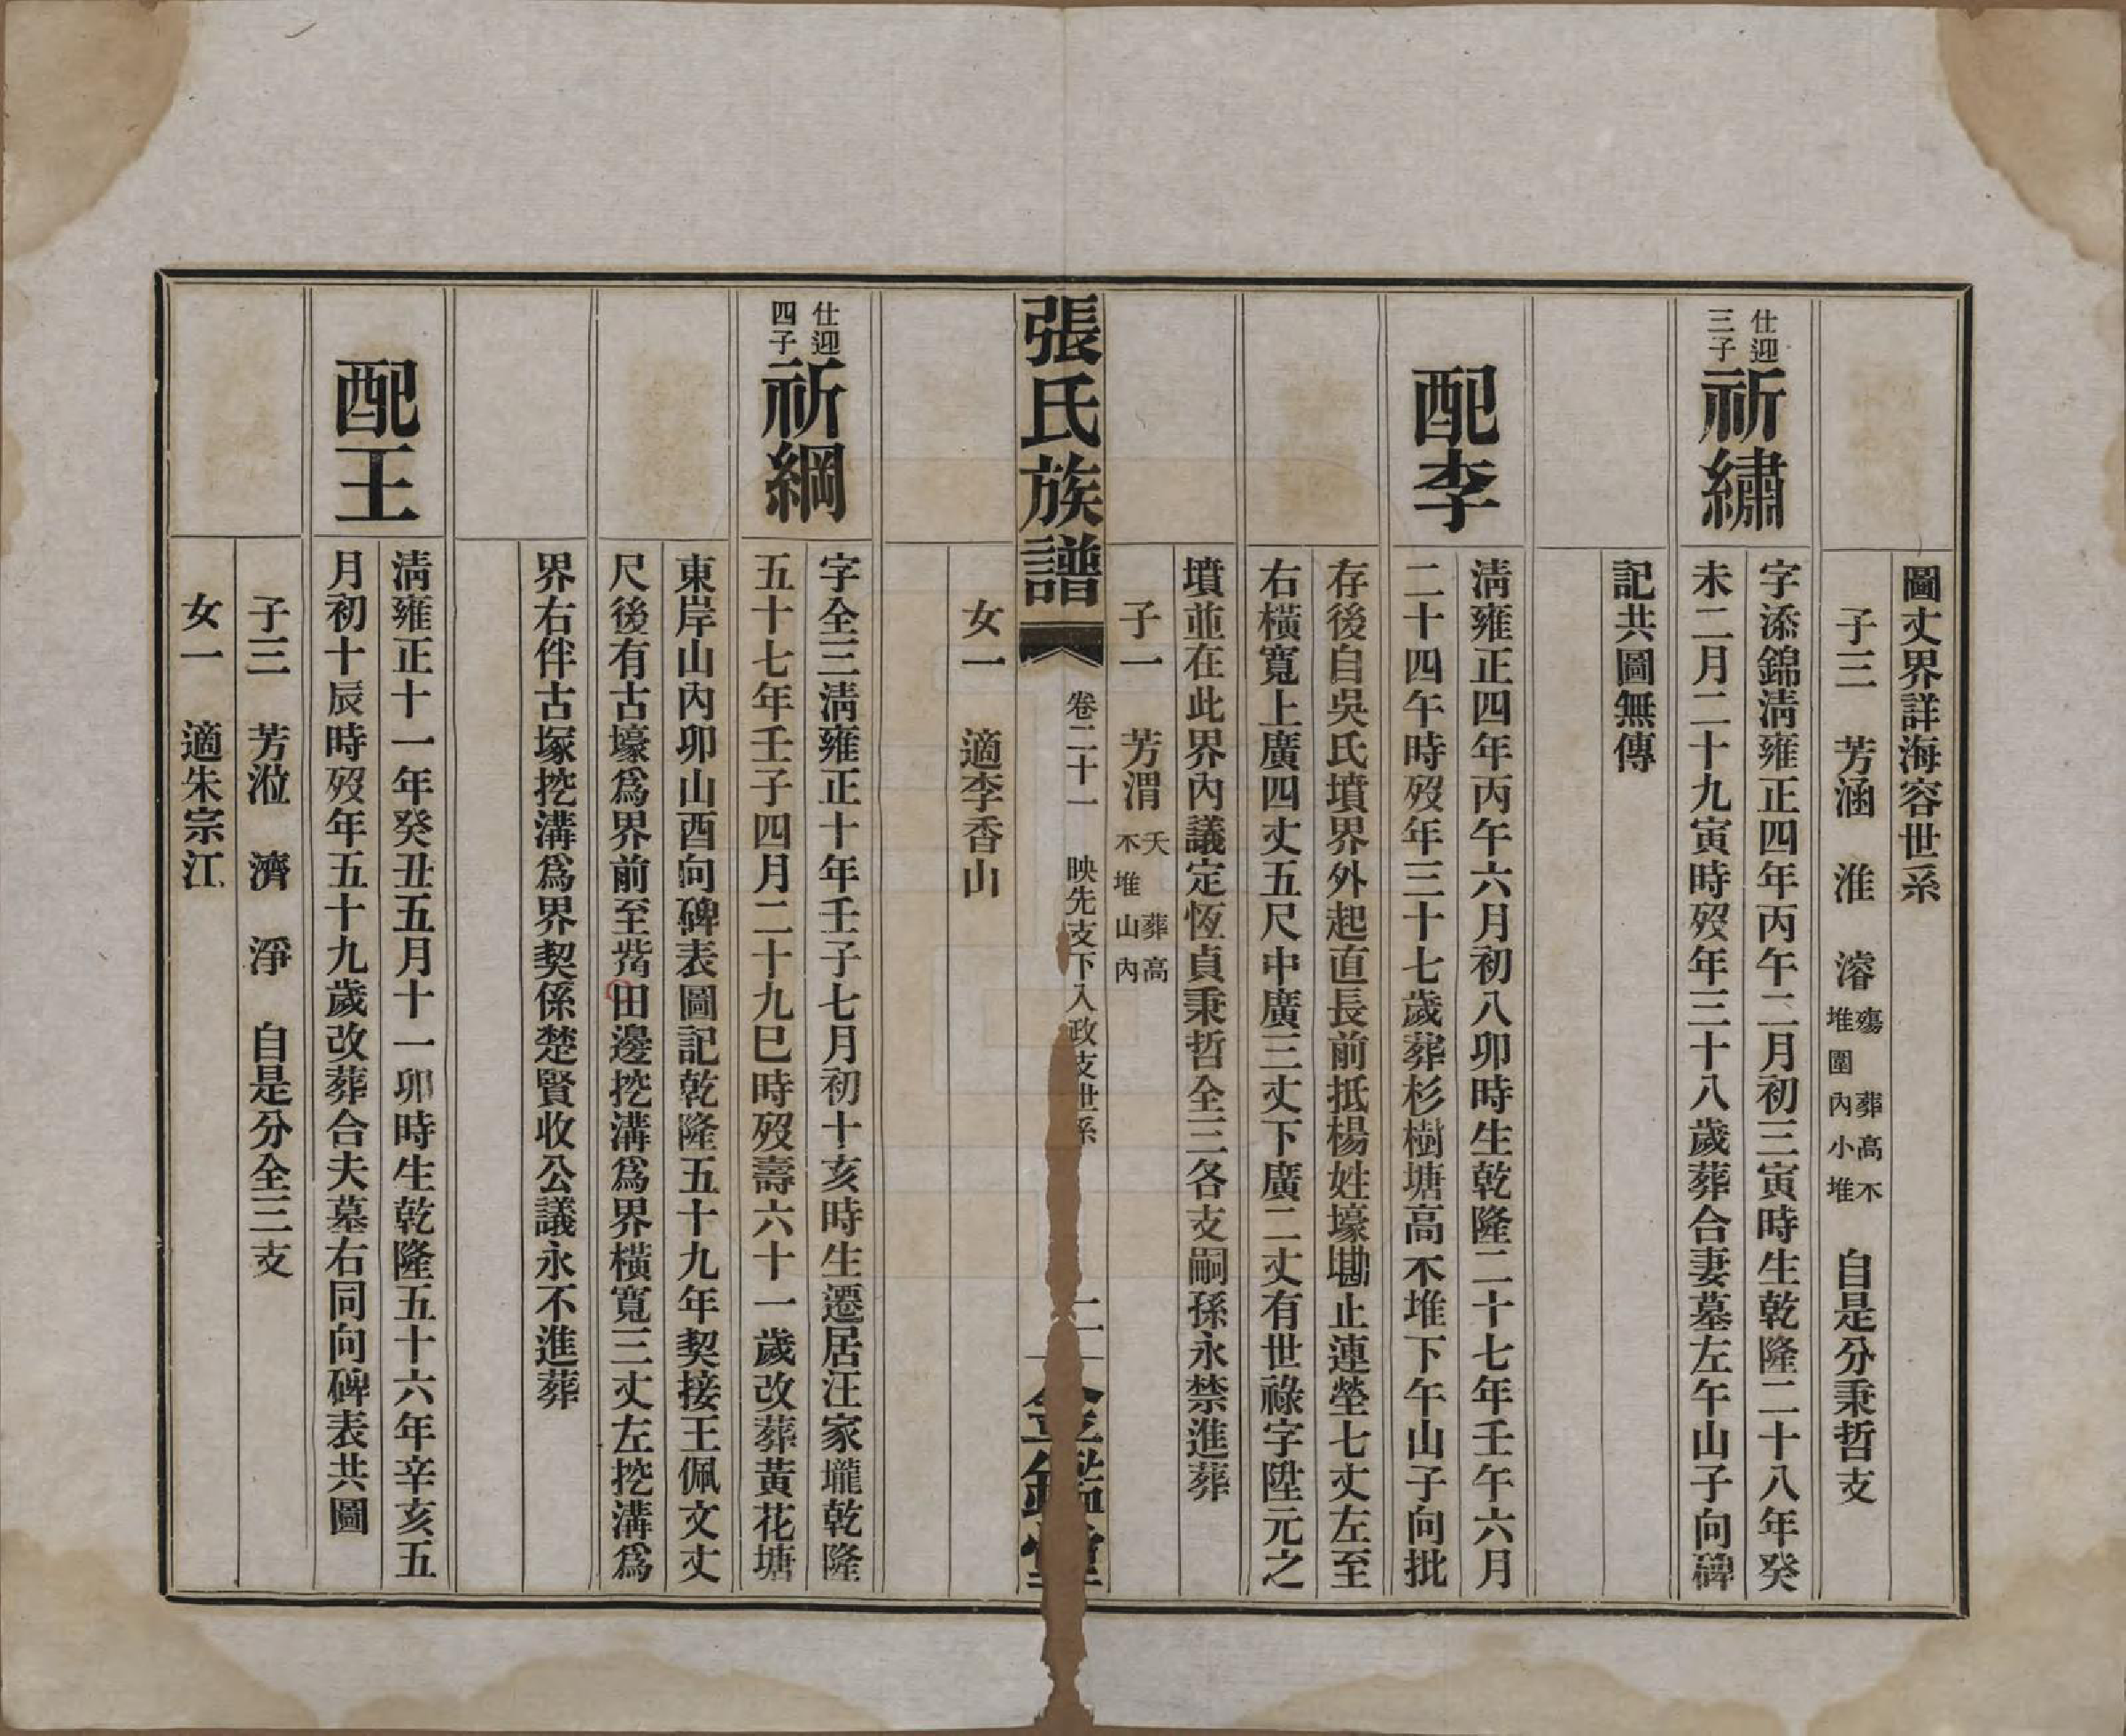 圖丈界詳海容世系
子三　芳涵　淮　濬殤葬高不堆圍內小堆　自是分秉哲支
仕迎三子
祈繡
字添錦清雍正四年丙午二月初三寅時生乾隆二十八年癸
未二月二十九寅時歿年三十八歲葬合妻墓左午山子向碑
記共圖無傳
配李
清雍正四年丙午六月初八卯時生乾隆二十七年壬午六月
二十四午時歿年三十七歲葬杉樹塘高不堆下午山子向批
存後自吳氏墳界外起直長前抵楊姓壕勘止連塋七丈左至
右橫寬上廣四丈五尺中廣三丈下廣二丈有世祿字陞元之
墳並在此界內議定恆貞秉哲全三各支嗣孫永禁進葬
子一　芳渭夭葬高不堆山內
張氏族譜
卷二十一　映先支下入政支世系
二
金鑑堂
女一　適李香山
仕迎四子
祈綱
字全三清雍正十年壬子七月初十亥時生遷居汪家壠乾隆
五十七年壬子四月二十九巳時歿壽六十一歲改葬黃花塘
東岸山內卯山酉向碑表圖記乾隆五十九年契接王佩文丈
尺後有古壕爲界前至㘭田邊挖溝爲界橫寬三丈左挖溝爲
界右伴古塚挖溝爲界契係楚賢收公議永不進葬
配王
清雍正十一年癸丑五月十一卯時生乾隆五十六年辛亥五
月初十辰時歿年五十九歲改葬合夫墓右同向碑表共圖
子三　芳涖　濟　淨　自是分全三支
女一　適朱宗江